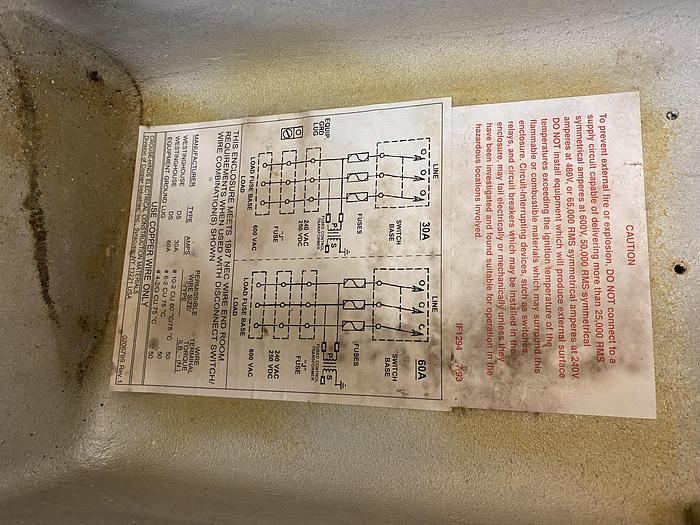 CAUTION
To prevent external fire or explosion, DO NOT connect to a
supply circuit capable of delivering more than 25,000 RMS
symmetrical amperes at 600V, 50,000 RMS symmetrical
amperes at 480V, or 65,000 RMS symmetrical amperes at 240V.
DO NOT install equipment which will produce external surface
temperatures exceeding the ignition temperature of the
flammable or combustible materials which may surround this
enclosure. Circuit-interrupting devices, such as switches,
relays, and circuit breakers which may be installed in the
enclosure, may fail electrically or mechanically unless they
have been investigated and found suitable for operation in the
hazardous locations involved.
IF1294 7/93
30A
LINE
SWITCH
BASE
FUSES
FUSED CONTROL
TRANSFORMER
P S
EQUIP
GRD
LUG
240 VAC
250 VDC
"J"
FUSE
600 VAC
LOAD FUSE BASE
LOAD
60A
LINE
SWITCH
BASE
FUSES
FUSED CONTROL
TRANSFORMER
P S
240 VAC
250 VDC
"J"
FUSE
600 VAC
LOAD FUSE BASE
LOAD
THIS ENCLOSURE MEETS 1987 NEC WIRE END ROOM
REQUIREMENTS WHEN USED WITH DISCONNECT SWITCH/
WIRE COMBINATIONS SHOWN.
MANUFACTURER TYPE AMPS PERMISSIBLE WIRE SIZE/ TYPE WIRE TERMINAL TORQUE (LB.-IN.)
WESTINGHOUSE DS 30A # 10-2 CU 60 °C/75 °C 50
WESTINGHOUSE DS 60A # 6-2 CU 75 °C 50
EQUIPMENT GROUND LUG CU 75 °C 50
USE COPPER WIRE ONLY
CROUSE-HINDS ELECTRICAL CONSTRUCTION MATERIALS
Division of Cooper Industries, Inc. Syracuse, NY 13221 USA
0209799 Rev. 1